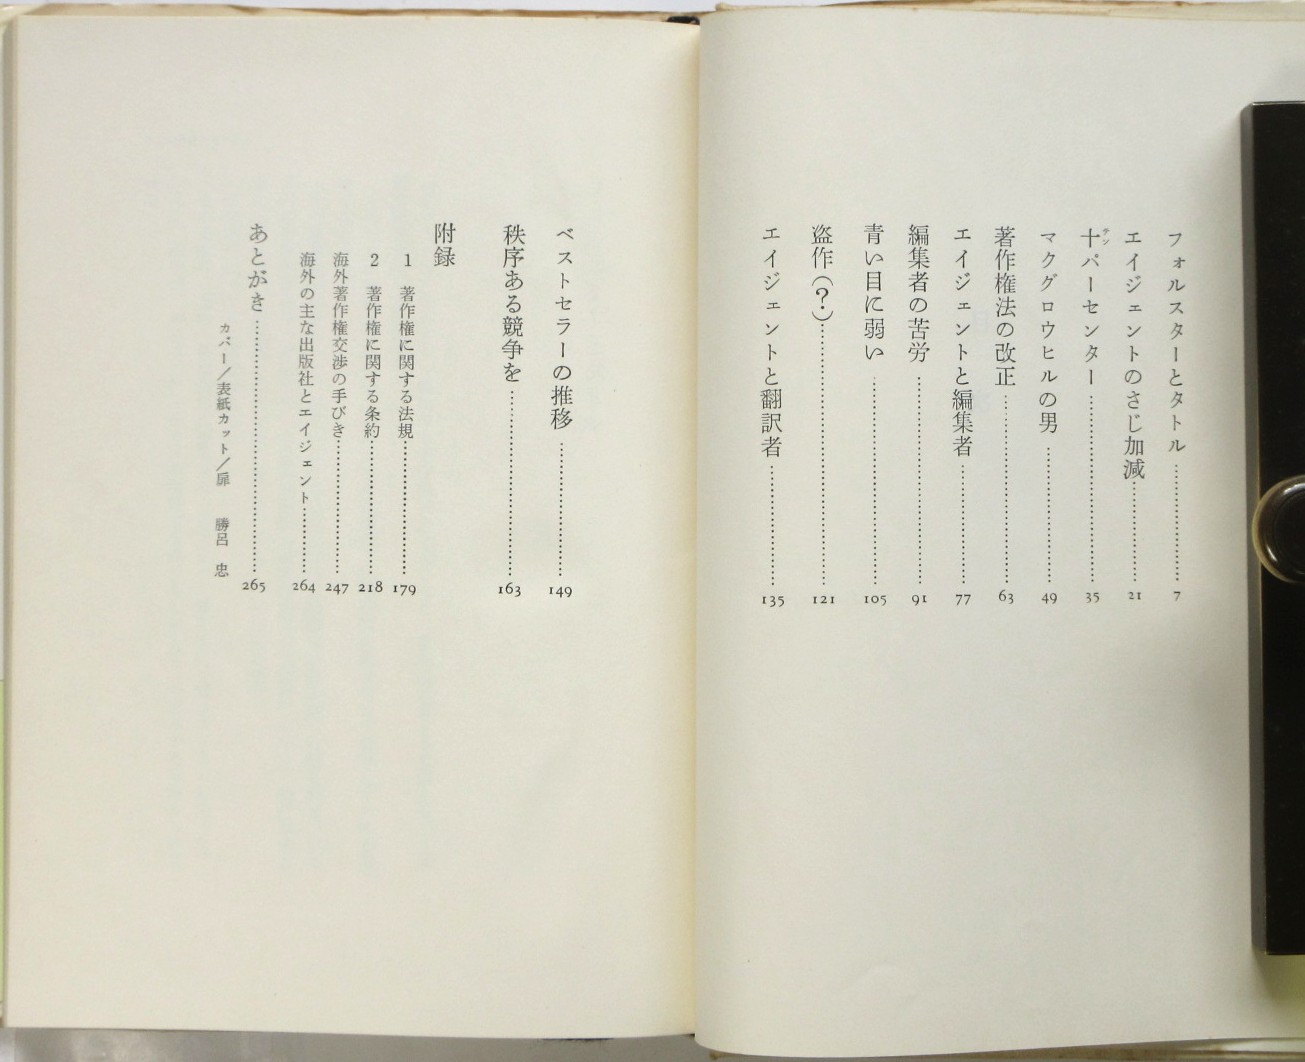 フォルスターとタトル……………7
エイジェントのさじ加減……………21
十パーセンター……………35
テン
マクグロウヒルの男……………49
著作権法の改正……………63
エイジェントと編集者……………77
編集者の苦労……………91
青い目に弱い……………105
盗作(?)……………121
エイジェントと翻訳者……………135
ベストセラーの推移……………149
秩序ある競争を……………163
附録
1 著作権に関する法規……………179
2 著作権に関する条約……………218
海外著作権交渉の手びき……………247
海外の主な出版社とエイジェント……………264
あとがき……………265
カバー/表紙カット/扉 勝呂 忠